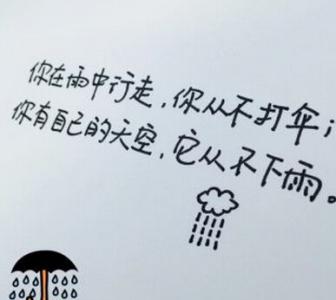 你在雨中行走，你从不打伞；
你有自己的天空，它从不下雨。